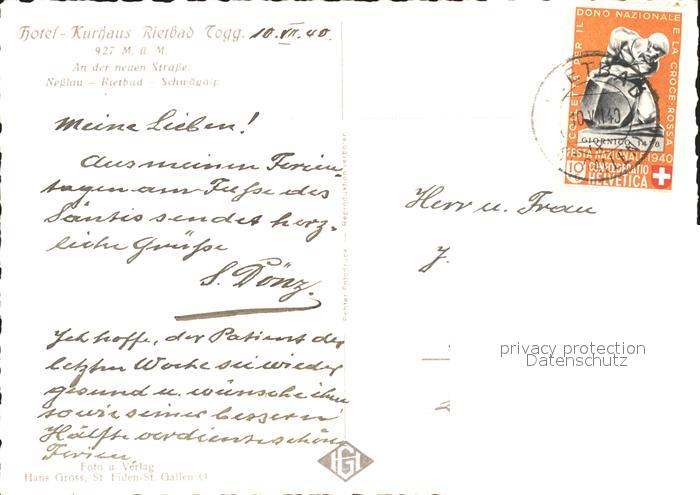 Hotel-Kurhaus Rietbad Togg. 10.VII.40.
927 M. ü. M.
An der neuen Straße:
Neßlau – Rietbad – Schwägalp
Meine Lieben!
Aus meinen Ferien
tagen am Fusse des
Säntis sendet herz-
liche Grüsse
S. Dönz.
Ich hoffe, der Patient der
letzten Woche sei wieder
gesund u. wünsche ihm
sowie seiner bessern
Hälfte verdiente schöne
Ferien.
Foto u Verlag
Hans Gross, St Fiden-St. Gallen O
Echter Fotodruck — Reproduktion verboten
HG
DONO NAZIONALE
PER IL
E LA CROCE-ROSSA
GIORNICO 1478
FESTA NAZIONALE 1940
10 CONFOEDERATIO
HELVETICA
Herr u. Frau
J.
privacy protection
Datenschutz